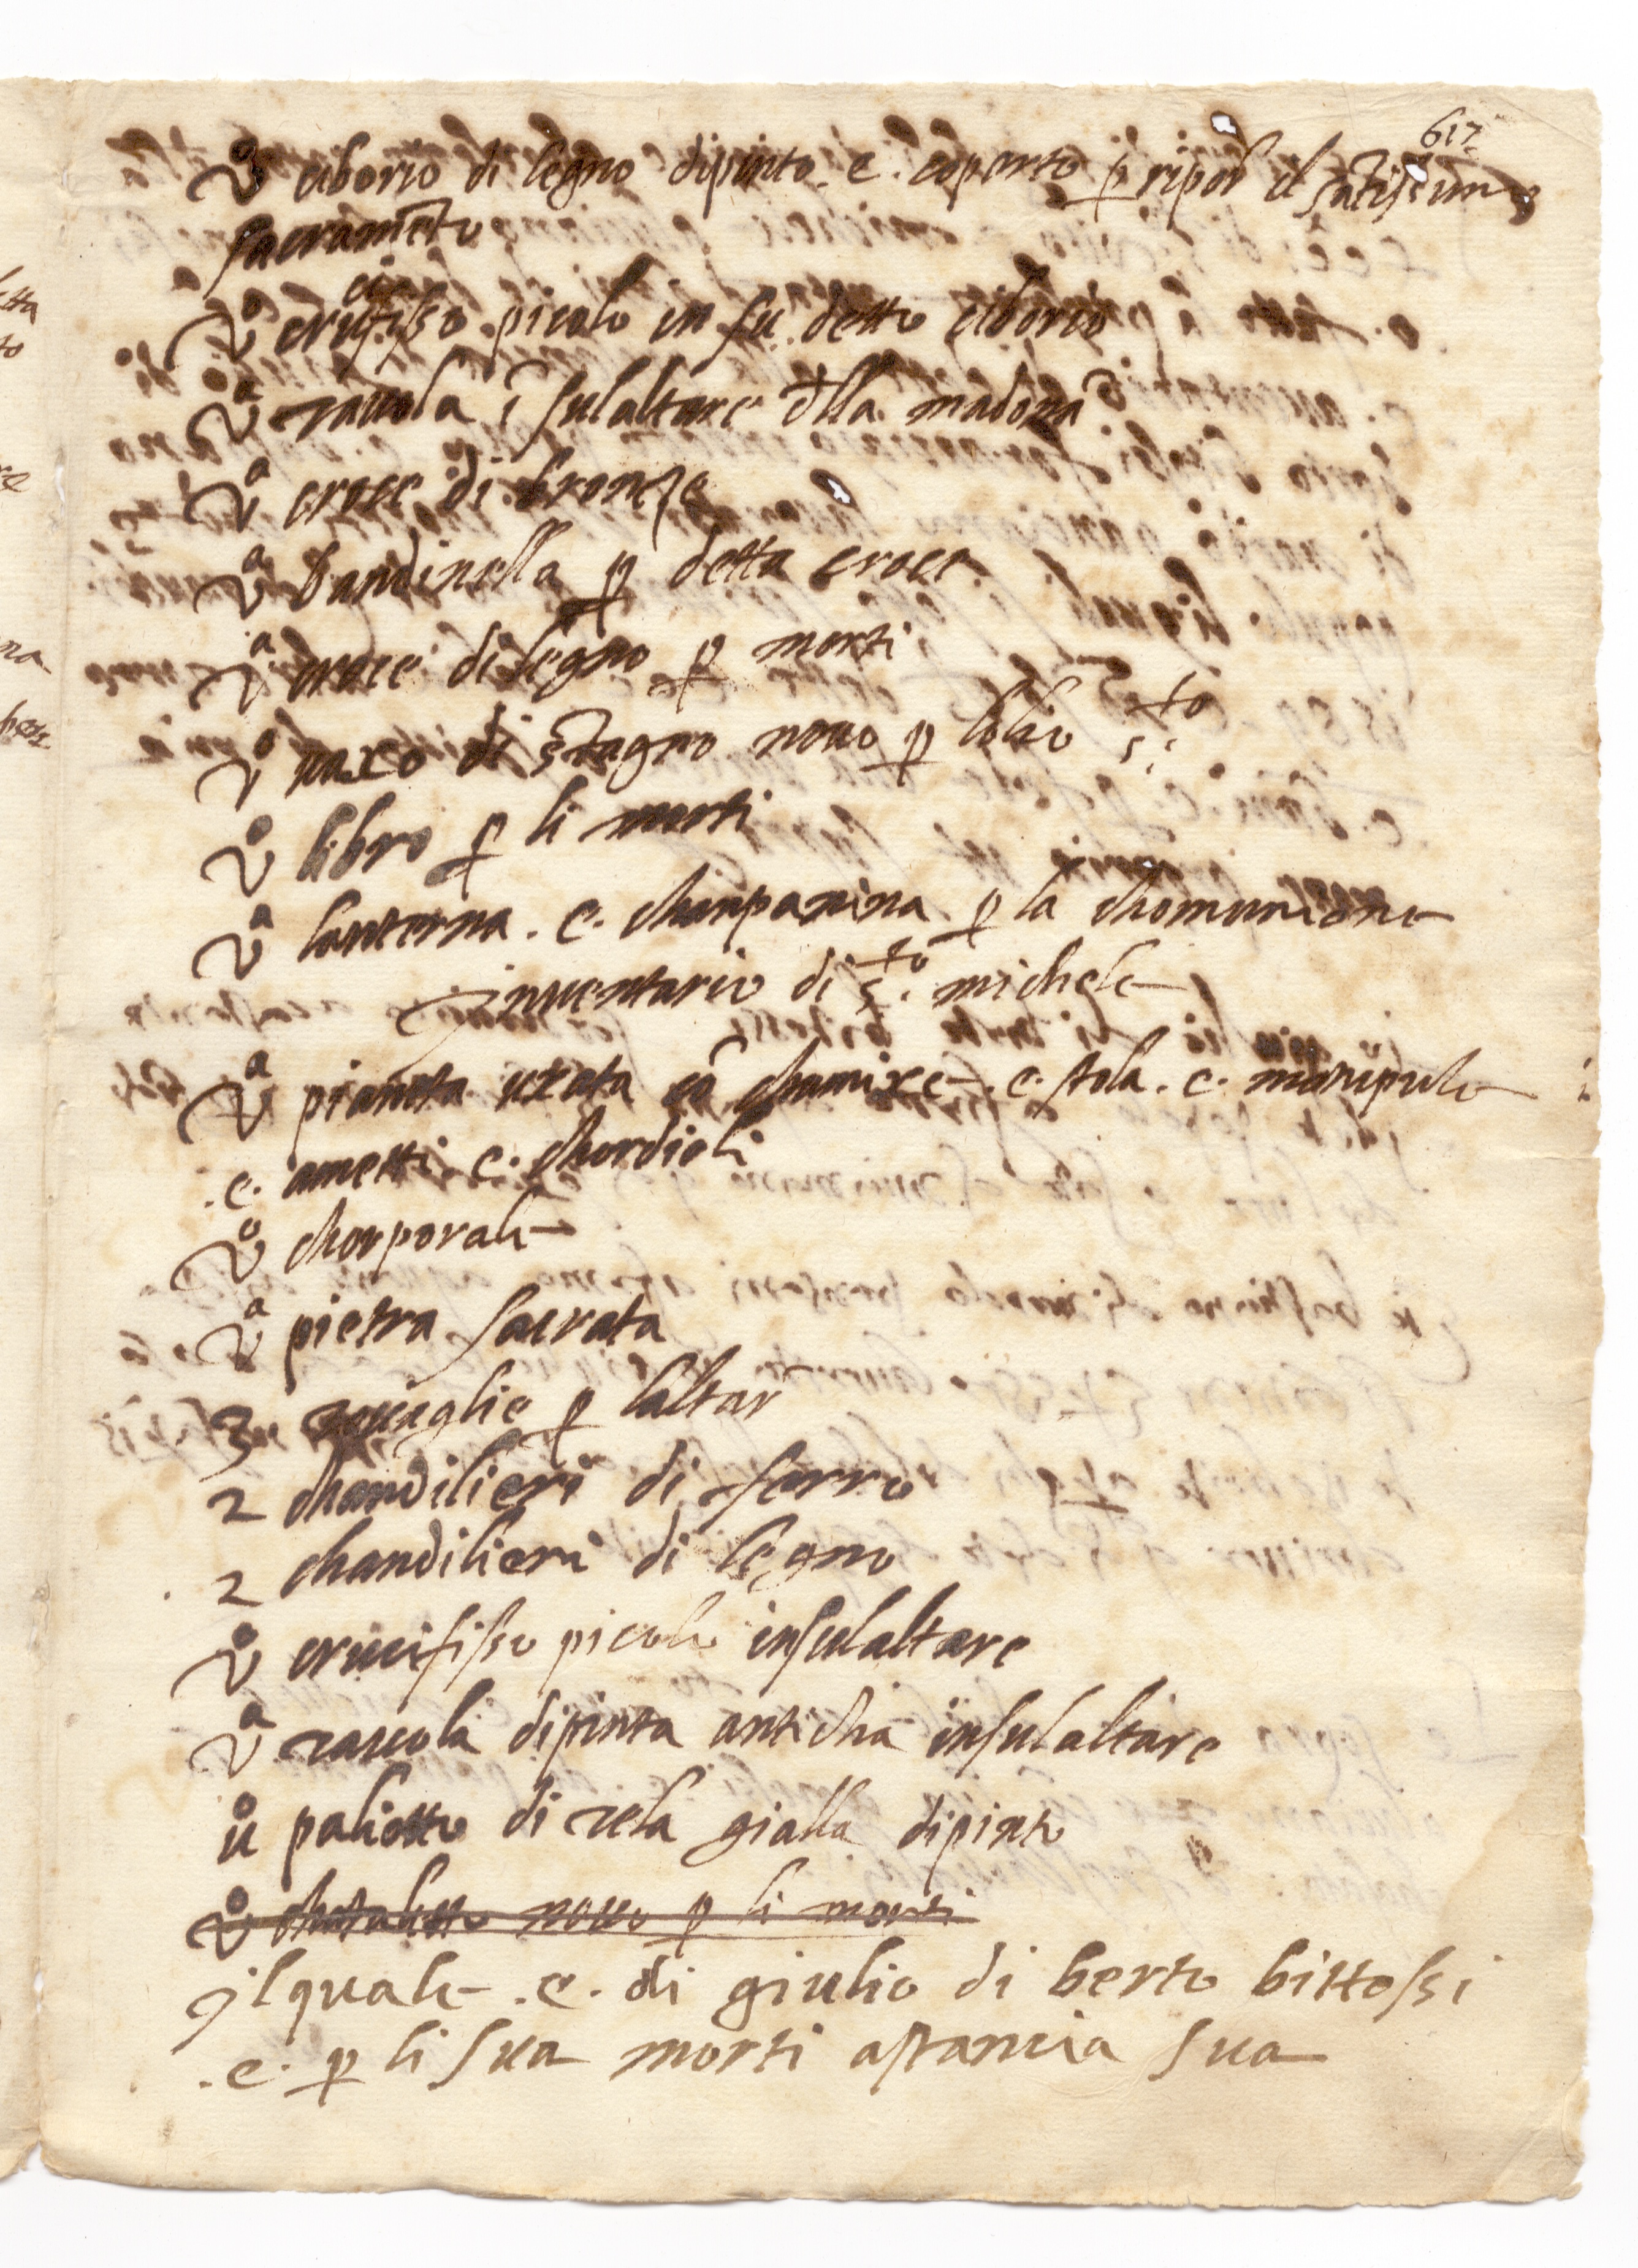 617
vº ciborio di legno dipinto .e. coperto p ripor il sãtissimo
sacramẽto
vº crucifisso picolo in su detto ciborio
vª tauola ĩ sulaltare dlla madonа
vª croce di bronzo
vª bandinella p detta croce
vª croce di legno p morti
vº vaxo di stagno nouo p lolio s.to
vº libro p li morti
vª lanterna .e. chanpanina p la chomunione
jnuentario di s.to michele
vª pianeta uxata cõ chamixe .e. stola .e. manipulo
.e. ametti .e. chordioli
vº chorporale
vª pietra sacrata
3 touaglie p laltar
2 chandilieri di ferro
2 chandilieri di legno
vº crucifisso picolo insulaltare
vª tauola dipinta anticha insulaltare
uº paliotto di tela gialla dipinto
vº chataletto nouo p li morti
jlquale .e. di giulio di berto bittossi
.e. p li sua morti astancia sua